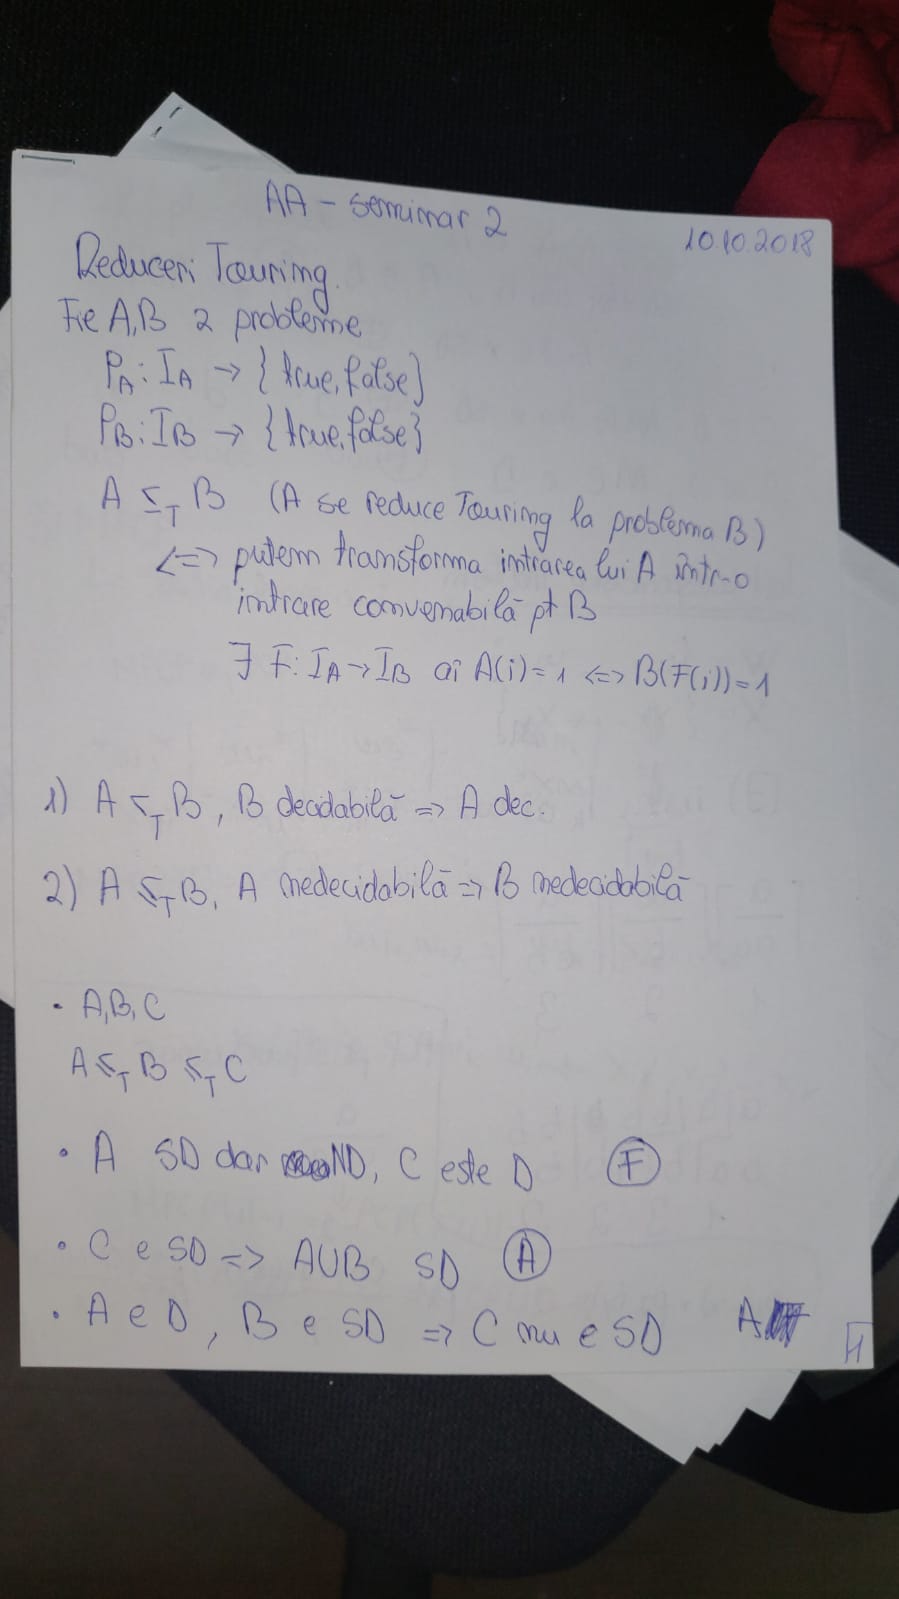 AA - seminar 2
10.10.2018
Reduceri Touring.
Fie A,B 2 probleme
PA: IA → {true, false}
PB: IB → {true, false}
A ≤T B (A se reduce Touring la problema B)
<=> putem transforma intrarea lui A într-o
intrare convenabilă pt B
∃ F: IA → IB aî A(i)=1 <=> B(F(i))=1
1) A ≤T B, B decidabilă => A dec.
2) A ≤T B, A nedecidabilă => B nedecidabilă
• A,B,C
A ≤T B ≤T C
• A SD dar ND, C este D F
• C e SD => AUB SD A
• A e D, B e SD => C nu e SD A